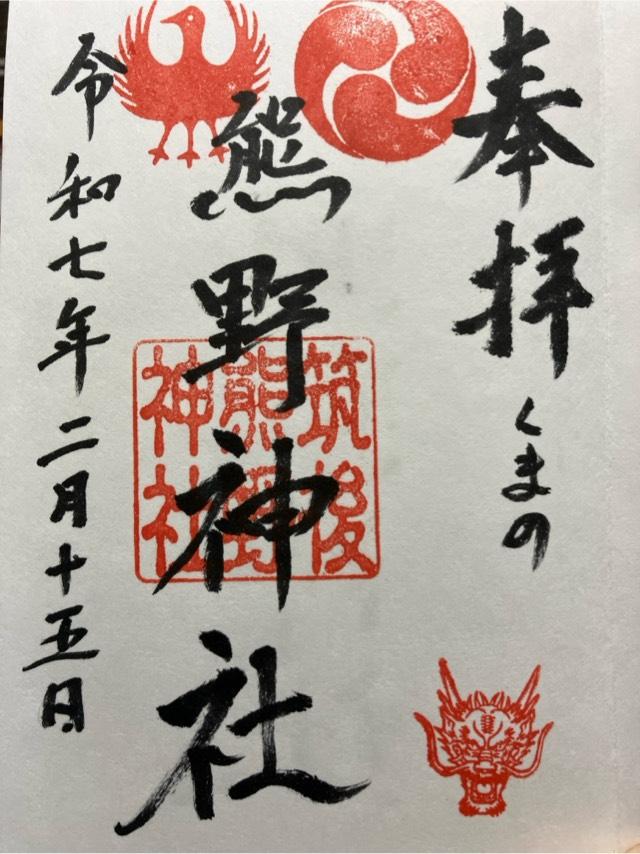 奉拝
くまの
熊野神社
筑後
熊野
神社
令和七年二月十五日